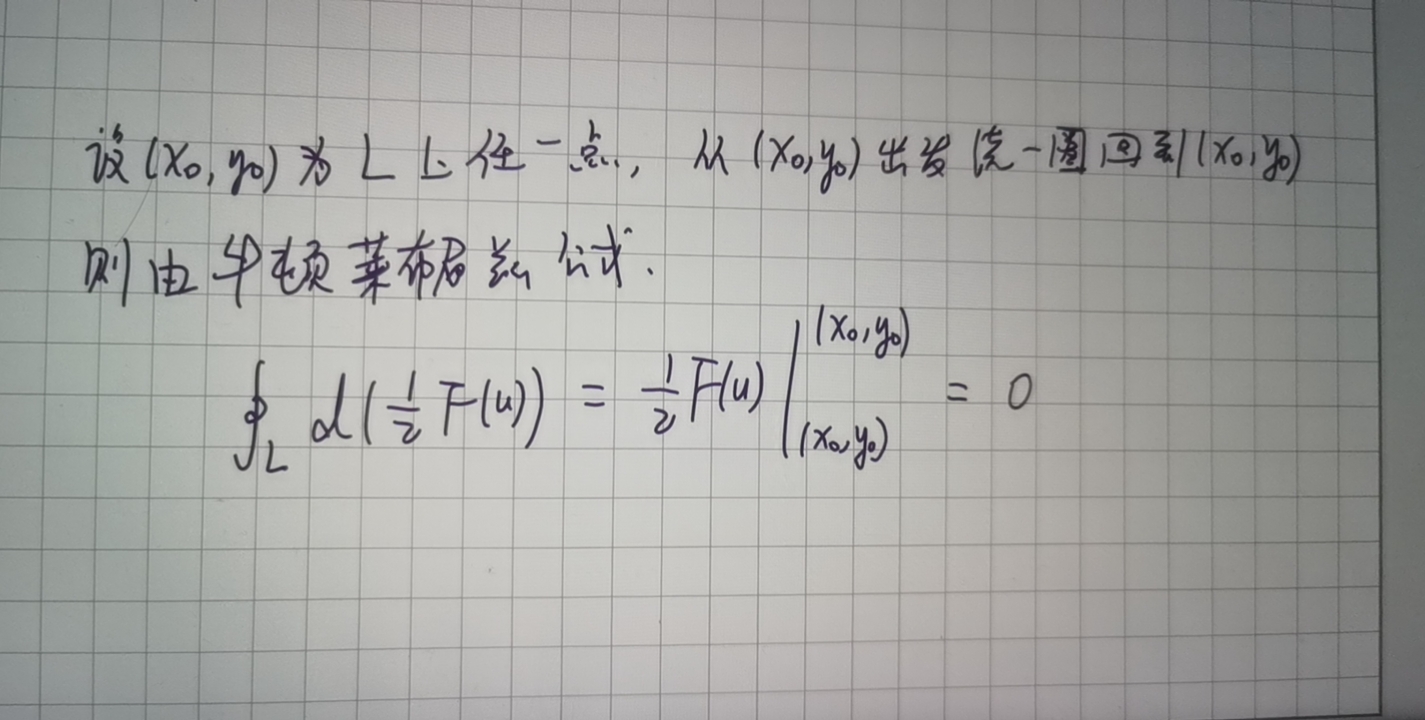 设(x₀,y₀)为L上任一点, 从(x₀,y₀)出发绕一圈回到(x₀,y₀)
则由牛顿莱布尼兹公式.
∮_L d(½F(u)) = ½F(u)|_(x₀,y₀)^(x₀,y₀) = 0